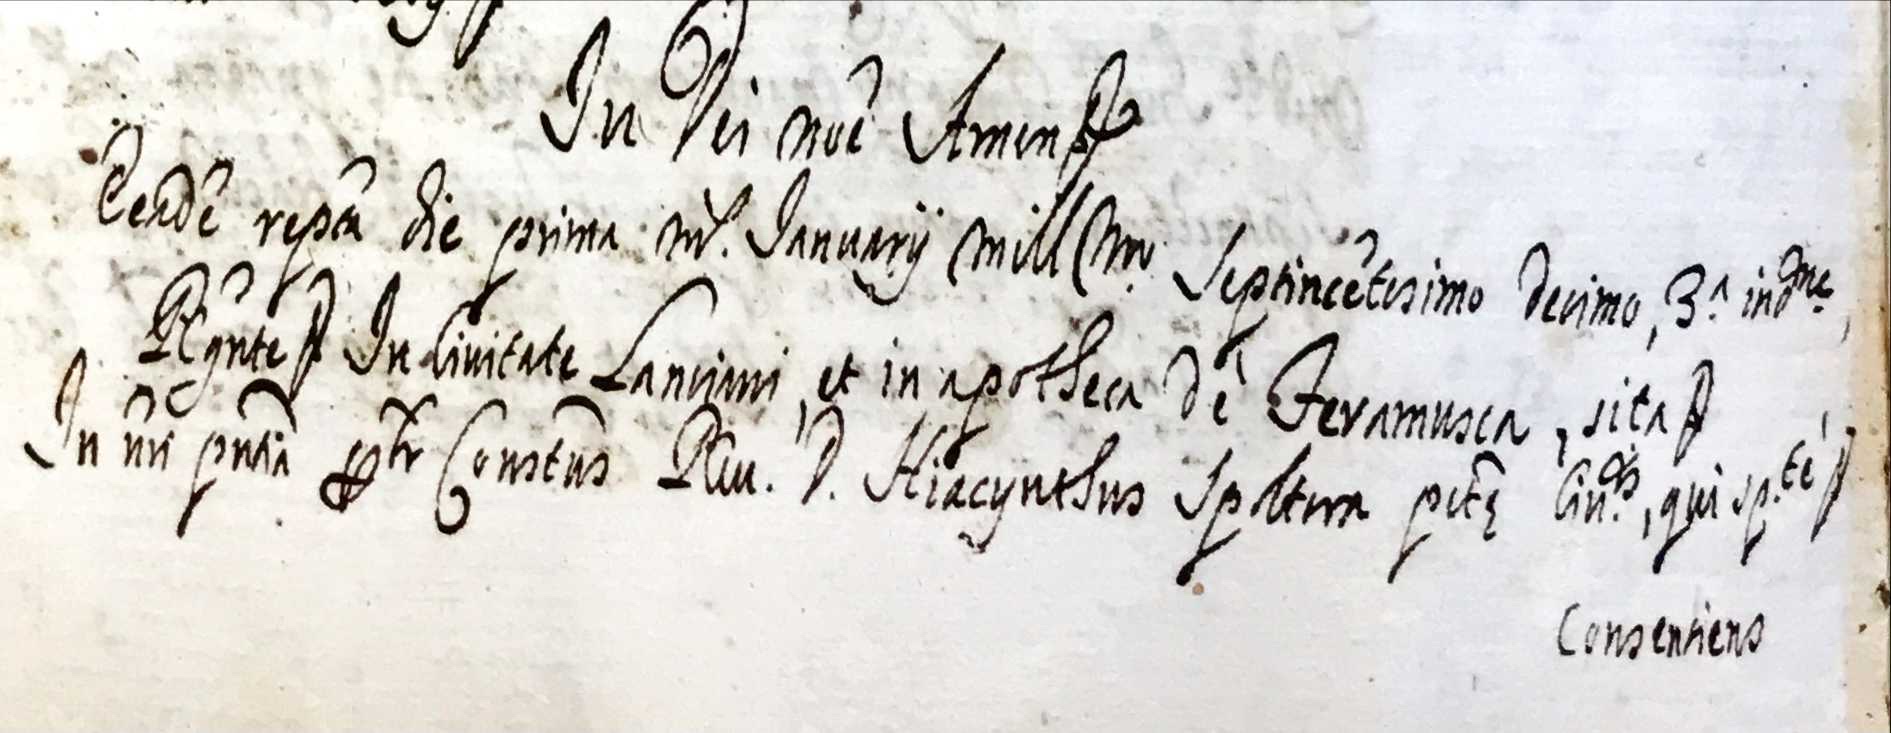 In Dei noē Amen
Eeādē rep̄ta die prima m.s Januarij mill(mo. Septincētesimo decimo, 3.a ind.ne,
Rg̃nte In Civitate Lanciani, et in apotheca dē Feramusca, sita
In ñri pñtia Constus Rev. D. Hiacynthus Spoltura Civ.tis, qui sp.te
Consentiens